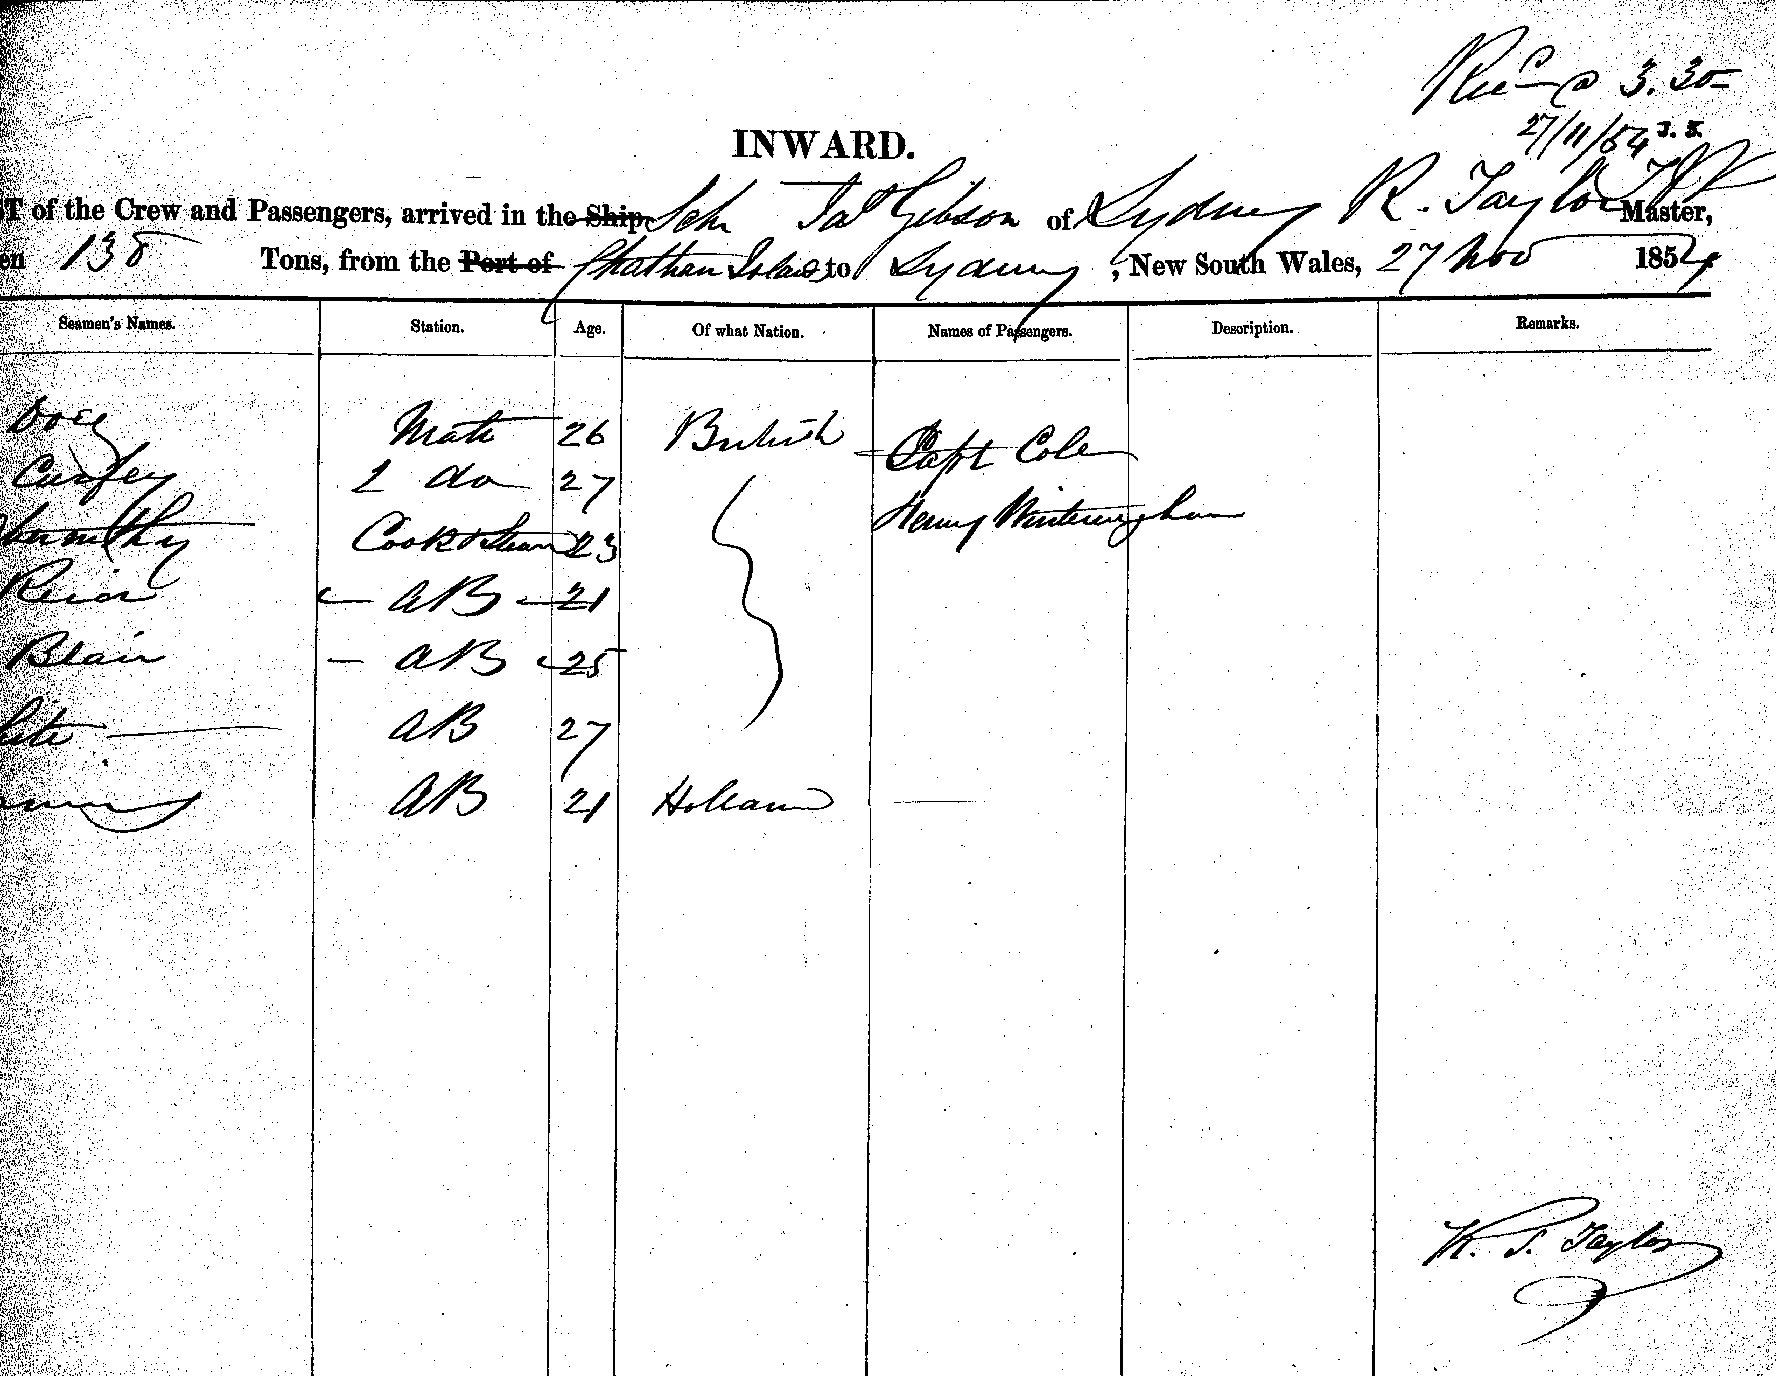 Recd @ 3.30
27/11/54 J.S.
INWARD.
T of the Crew and Passengers, arrived in the Ship Schr Jas Gibson of Sydney R. Taylor Master,
en 138 Tons, from the Port of Chatham Islands to Sydney, New South Wales, 27 Nov 1854
Seamen's Names. Station. Age. Of what Nation. Names of Passengers. Description. Remarks.
Mate 26 British Capt Cole
Curfey 2 do 27 Henry Winteringham
Cook & Steward 23
AB 21
Blair AB 25
AB 27
AB 21 Holland
R. S. Taylor